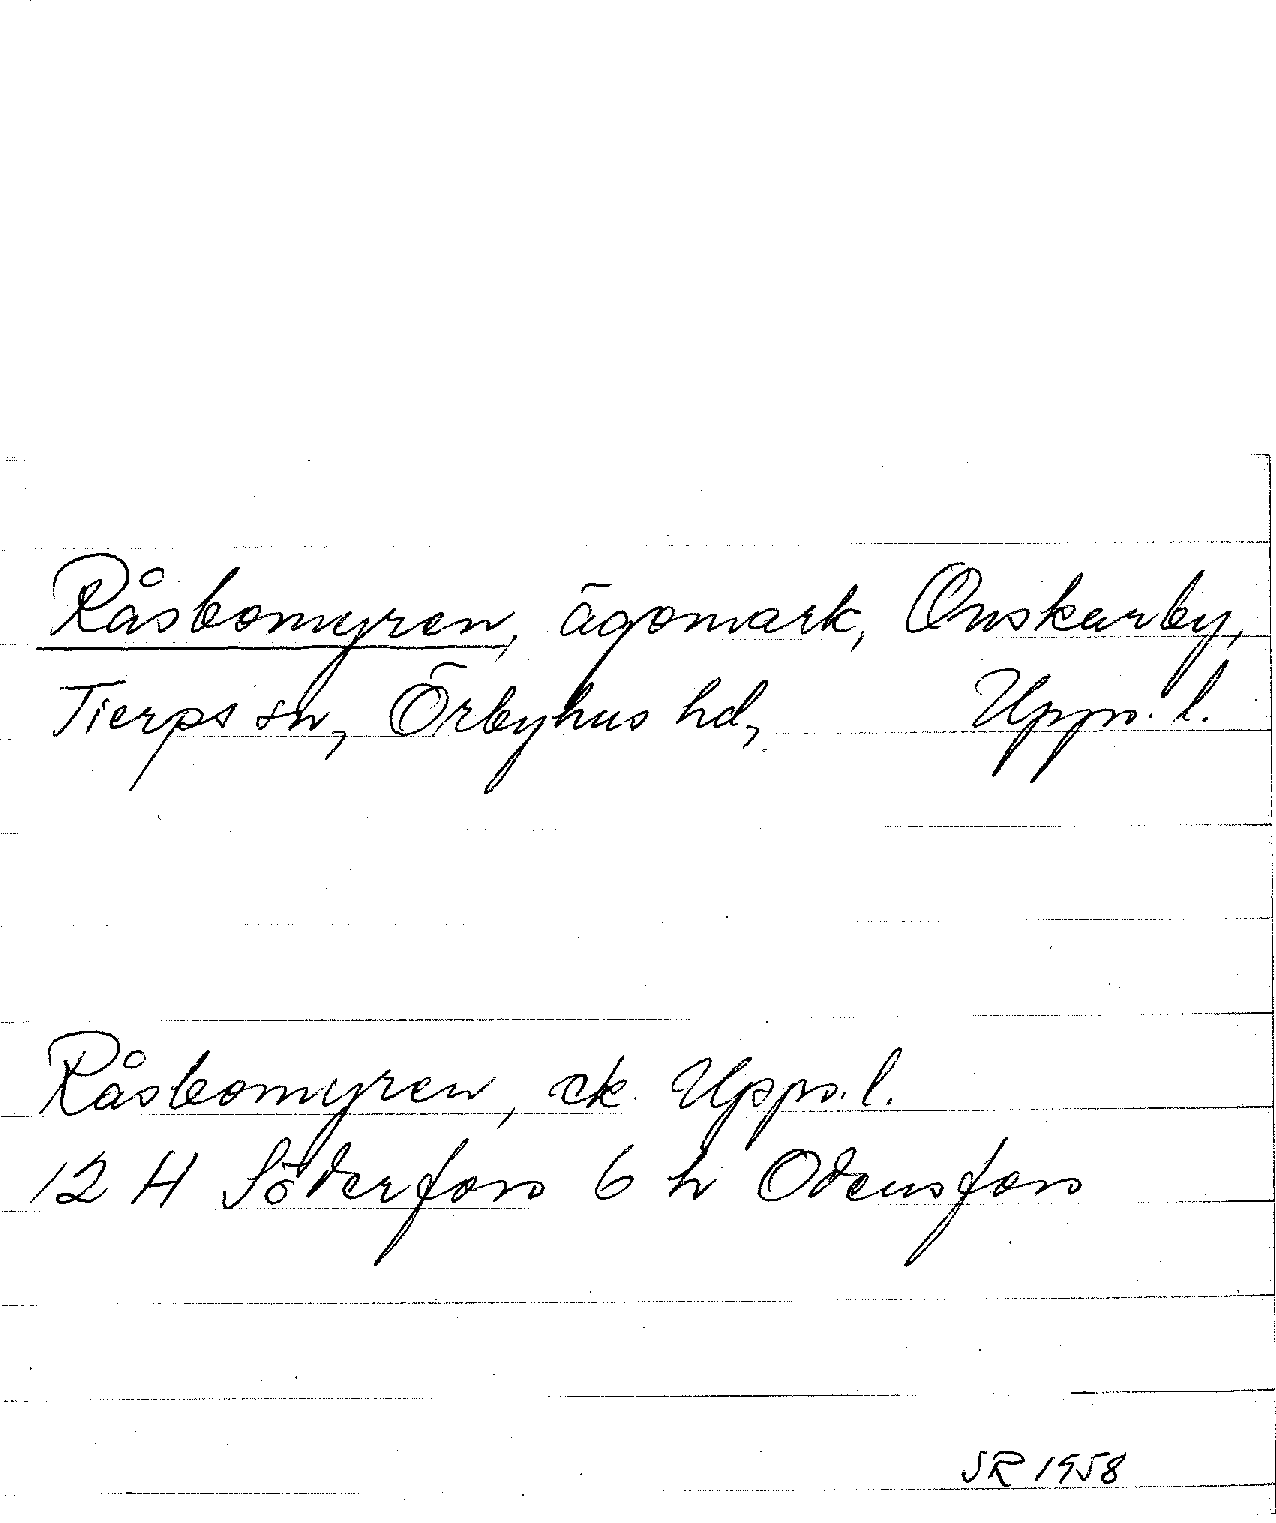 Råsbomyren, ägomark, Onskarby,
Tierps sn, Örbyhus hd, Upps. l.
Råsbomyren, ek. Upps. l.
12 H Söderfors 6 h Odensfors
SR 1958